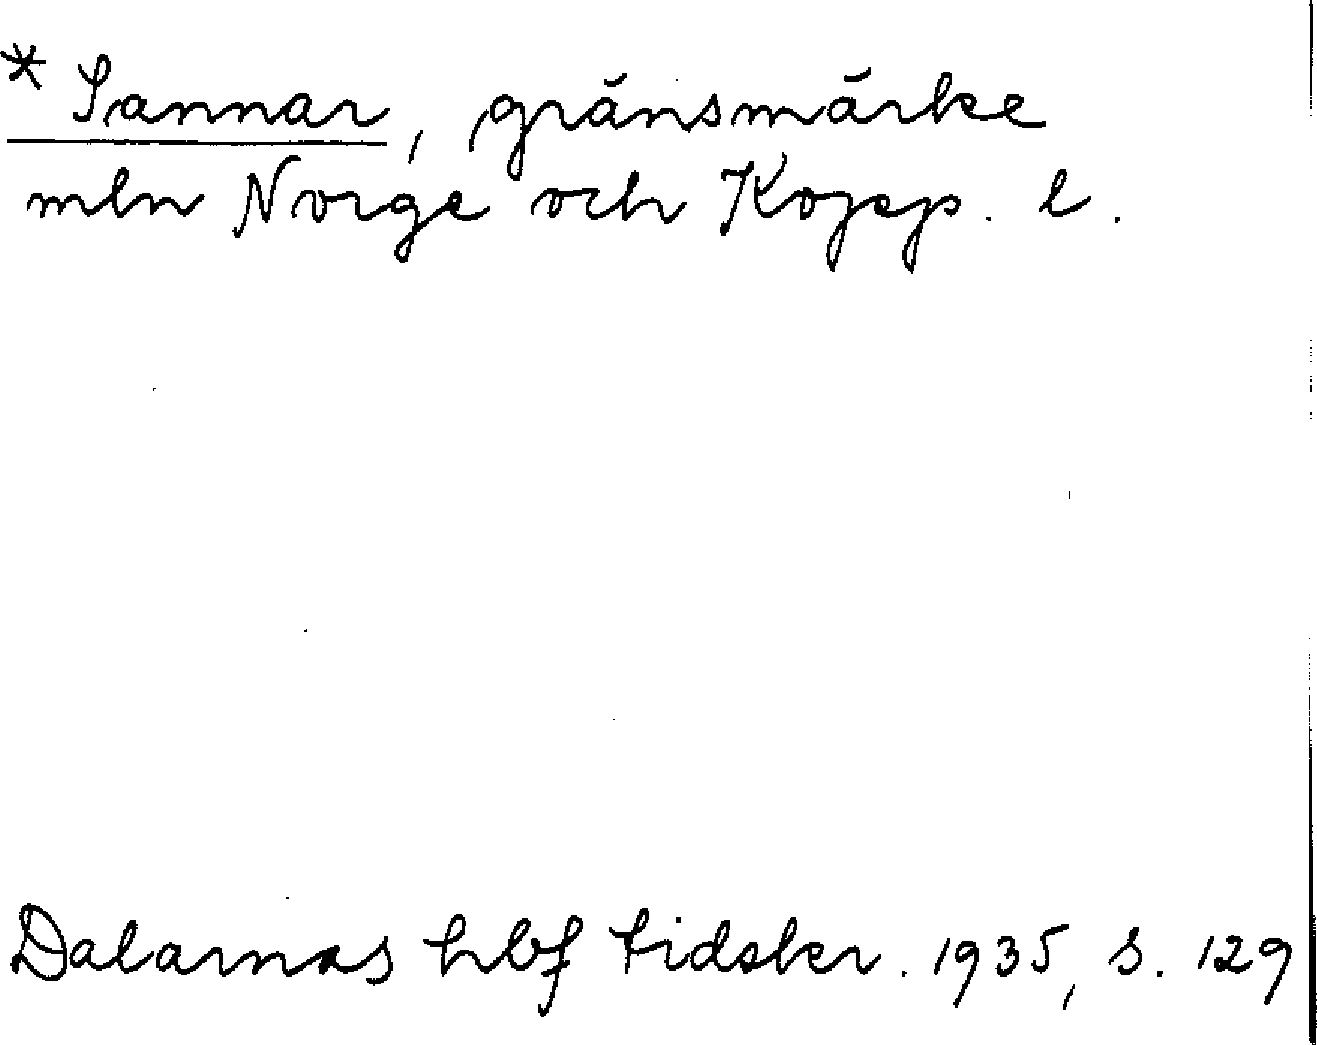 * Sannar, gränsmärke
mln Norge och Kopp. l.
Dalarnas hbf tidskr. 1935, s. 129